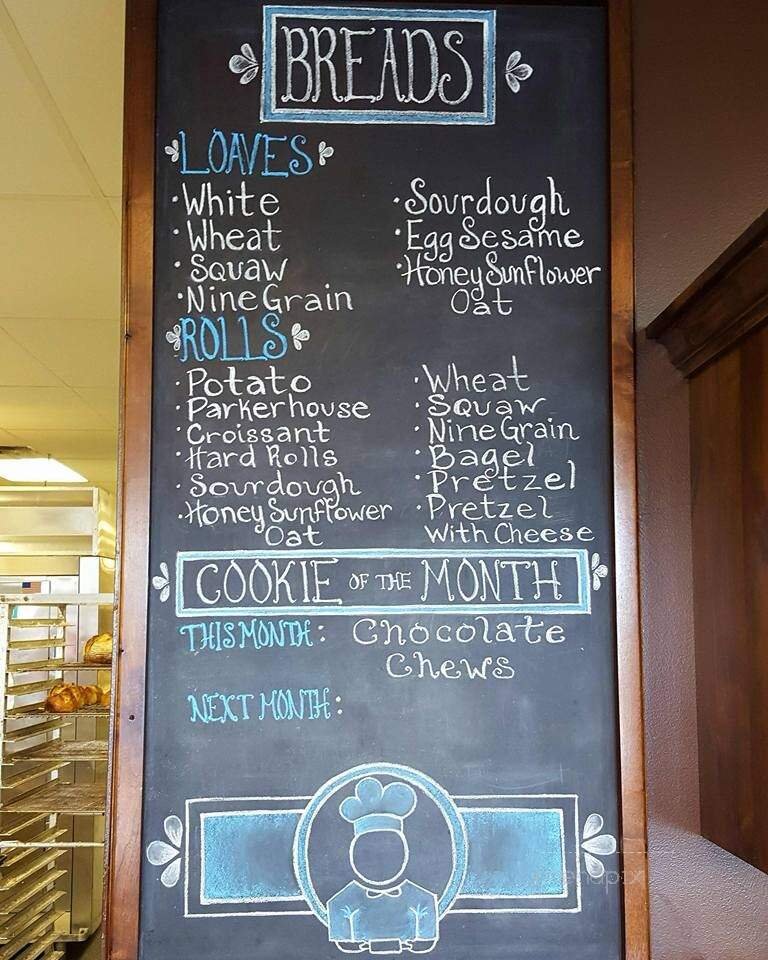 BREADS
LOAVES
·White
·Wheat
·Squaw
·Nine Grain
·Sourdough
·Egg Sesame
·Honey Sunflower
Oat
ROLLS
·Potato
·Parkerhouse
·Croissant
·Hard Rolls
·Sourdough
·Honey Sunflower
Oat
·Wheat
·Squaw
·Nine Grain
·Bagel
·Pretzel
·Pretzel
With Cheese
COOKIE OF THE MONTH
THIS MONTH: Chocolate
Chews
NEXT MONTH: